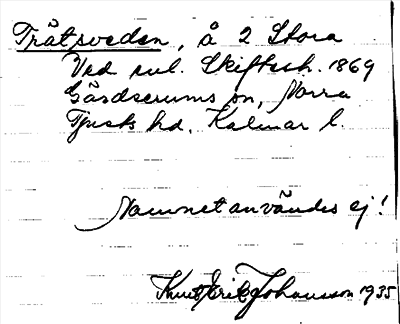 Trätsveden, å 2 Stora
Ved enl. Skiftesh. 1869
Gärdserums sn, Norra
Tjusts hd, Kalmar l.
Namnet användes ej!
Knut Erik Johansson 1935